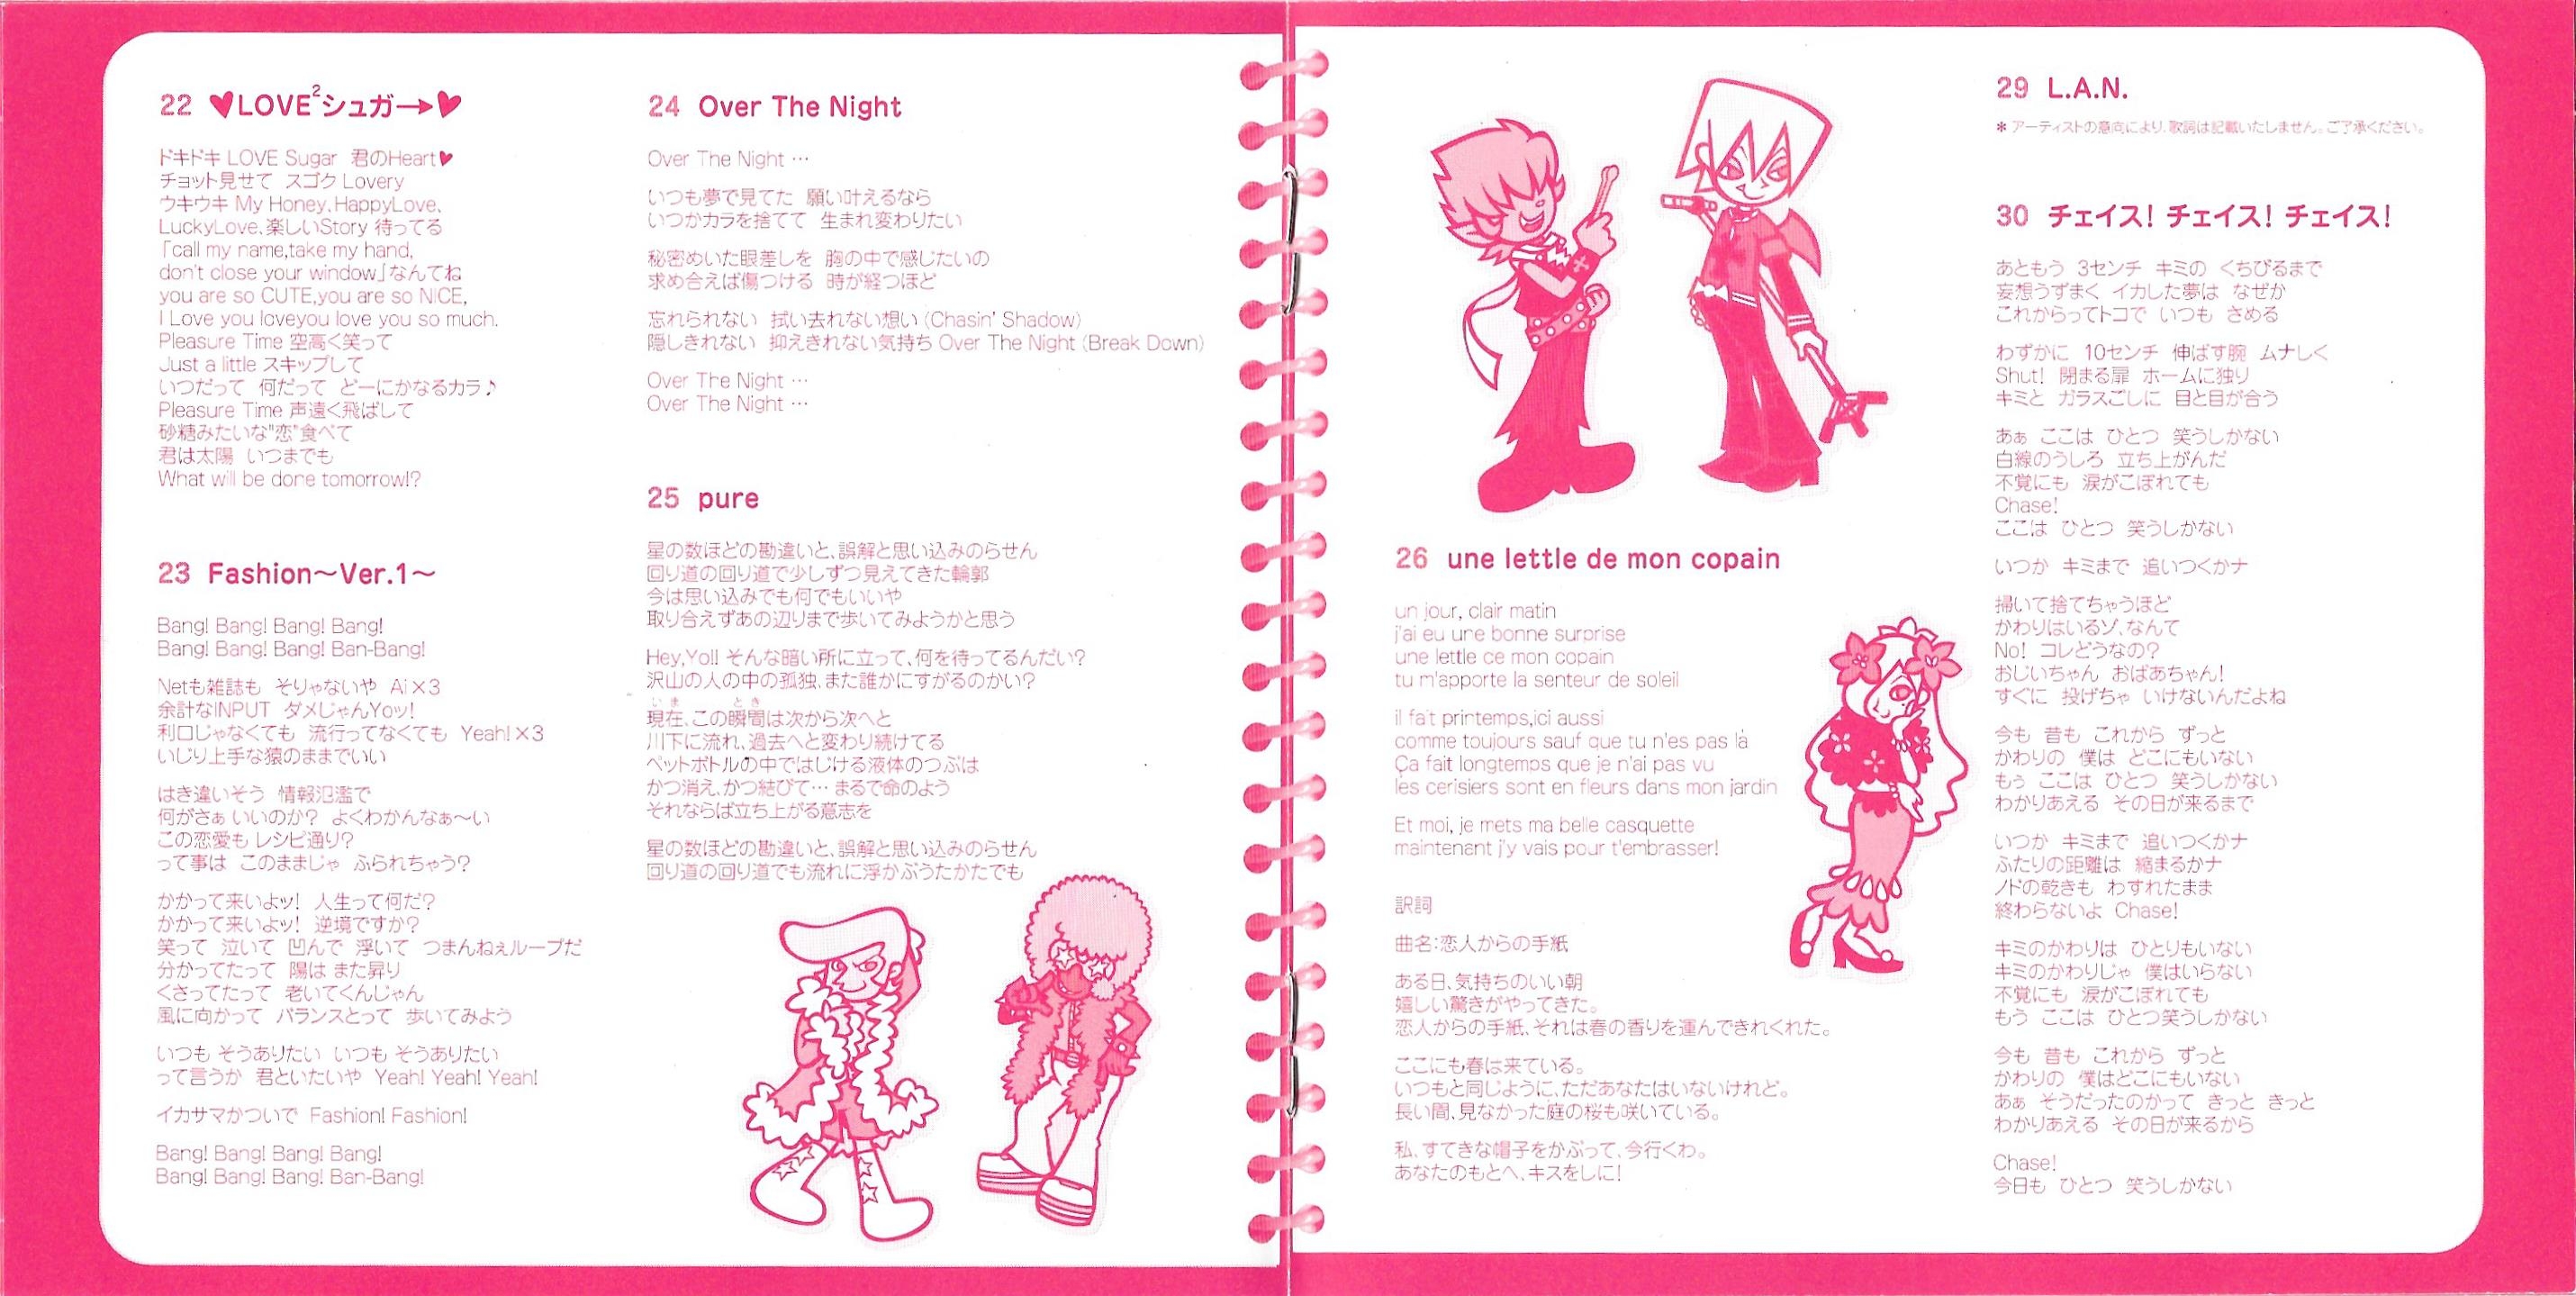 22 ♥LOVE²シュガー→♥
ドキドキ LOVE Sugar 君のHeart♥
チョット見せて スゴク Lovery
ウキウキ My Honey,HappyLove,
LuckyLove,楽しいStory 待ってる
「call my name,take my hand,
don't close your window」なんてね
you are so CUTE,you are so NICE,
I Love you loveyou love you so much.
Pleasure Time 空高く笑って
Just a little スキップして
いつだって 何だって どーにかなるカラ♪
Pleasure Time 声遠く飛ばして
砂糖みたいな"恋"食べて
君は太陽 いつまでも
What will be done tomorrow!?
23 Fashion～Ver.1～
Bang! Bang! Bang! Bang!
Bang! Bang! Bang! Ban-Bang!
Netも雑誌も そりゃないや Ai×3
余計なINPUT ダメじゃんYoッ!
利口じゃなくても 流行ってなくても Yeah!×3
いじり上手な猿のままでいい
はき違いそう 情報氾濫で
何がさぁ いいのか? よくわかんなぁ～い
この恋愛も レシピ通り?
って事は このままじゃ ふられちゃう?
かかって来いよッ! 人生って何だ?
かかって来いよッ! 逆境ですか?
笑って 泣いて 凹んで 浮いて つまんねぇループだ
分かってたって 陽は また昇り
くさってたって 老いてくんじゃん
風に向かって バランスとって 歩いてみよう
いつも そうありたい いつも そうありたい
って言うか 君といたいや Yeah! Yeah! Yeah!
イカサマかついで Fashion! Fashion!
Bang! Bang! Bang! Bang!
Bang! Bang! Bang! Ban-Bang!
24 Over The Night
Over The Night …
いつも夢で見てた 願い叶えるなら
いつかカラを捨てて 生まれ変わりたい
秘密めいた眼差しを 胸の中で感じたいの
求め合えば傷つける 時が経つほど
忘れられない 拭い去れない想い (Chasin' Shadow)
隠しきれない 抑えきれない気持ち Over The Night (Break Down)
Over The Night …
Over The Night …
25 pure
星の数ほどの勘違いと、誤解と思い込みのらせん
回り道の回り道で少しずつ見えてきた輪郭
今は思い込みでも何でもいいや
取り合えずあの辺りまで歩いてみようかと思う
Hey,Yo!! そんな暗い所に立って、何を待ってるんだい?
沢山の人の中の孤独、また誰かにすがるのかい?
いま とき
現在、この瞬間は次から次へと
川下に流れ、過去へと変わり続けてる
ペットボトルの中ではじける液体のつぶは
かつ消え、かつ結びて… まるで命のよう
それならば立ち上がる意志を
星の数ほどの勘違いと、誤解と思い込みのらせん
回り道の回り道でも流れに浮かぶうたかたでも
26 une lettle de mon copain
un jour, clair matin
j'ai eu une bonne surprise
une lettle ce mon copain
tu m'apporte la senteur de soleil
il fait printemps,ici aussi
comme toujours sauf que tu n'es pas là
Ça fait longtemps que je n'ai pas vu
les cerisiers sont en fleurs dans mon jardin
Et moi, je mets ma belle casquette
maintenant j'y vais pour t'embrasser!
訳詞
曲名:恋人からの手紙
ある日、気持ちのいい朝
嬉しい驚きがやってきた。
恋人からの手紙、それは春の香りを運んできれくれた。
ここにも春は来ている。
いつもと同じように、ただあなたはいないけれど。
長い間、見なかった庭の桜も咲いている。
私、すてきな帽子をかぶって、今行くわ。
あなたのもとへ、キスをしに!
29 L.A.N.
＊アーティストの意向により、歌詞は記載いたしません。ご了承ください。
30 チェイス! チェイス! チェイス!
あともう 3センチ キミの くちびるまで
妄想うずまく イカした夢は なぜか
これからってトコで いつも さめる
わずかに 10センチ 伸ばす腕 ムナしく
Shut! 閉まる扉 ホームに独り
キミと ガラスごしに 目と目が合う
あぁ ここは ひとつ 笑うしかない
白線のうしろ 立ち上がんだ
不覚にも 涙がこぼれても
Chase!
ここは ひとつ 笑うしかない
いつか キミまで 追いつくかナ
掃いて捨てちゃうほど
かわりはいるゾ、なんて
No! コレどうなの?
おじいちゃん おばあちゃん!
すぐに 投げちゃ いけないんだよね
今も 昔も これから ずっと
かわりの 僕は どこにもいない
もぅ ここは ひとつ 笑うしかない
わかりあえる その日が来るまで
いつか キミまで 追いつくかナ
ふたりの距離は 縮まるかナ
ノドの乾きも わすれたまま
終わらないよ Chase!
キミのかわりは ひとりもいない
キミのかわりじゃ 僕はいらない
不覚にも 涙がこぼれても
もう ここは ひとつ笑うしかない
今も 昔も これから ずっと
かわりの 僕はどこにもいない
あぁ そうだったのかって きっと きっと
わかりあえる その日が来るから
Chase!
今日も ひとつ 笑うしかない